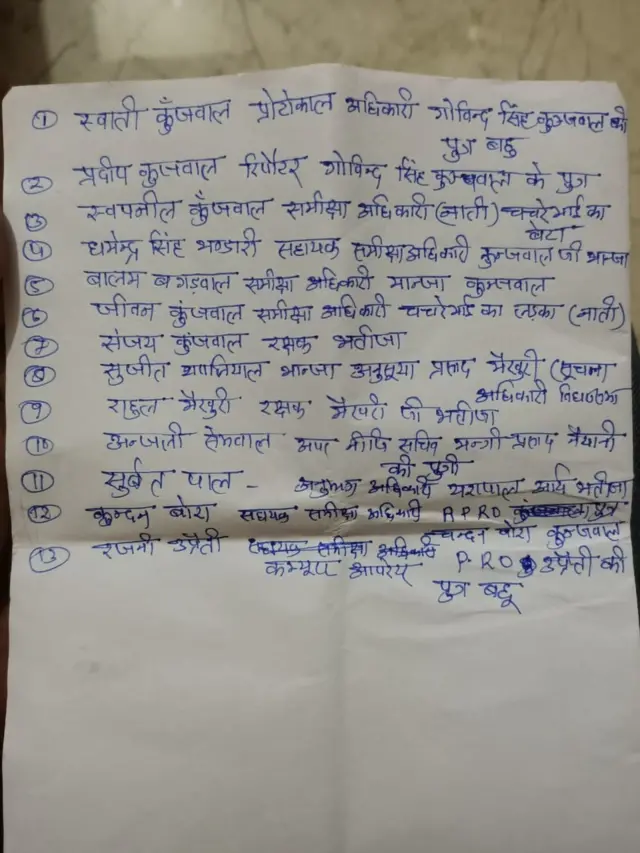 ① स्वाती कुँजवाल प्रोटोकाल अधिकारी गोविन्द सिंह कुन्जवाल की
पुत्र बहु
② प्रदीप कुजवाल रिर्पोटर गोविन्द सिंह कुन्जवाल के पुत्र
③ स्वपनील कुँजवाल समीक्षा अधिकारी (नाती) चचरेभाई का
बेटा
④ धमेन्द्र सिंह भण्डारी सहायक समीक्षा अधिकारी कुन्जवाल जी भान्जा
⑤ बालम बगड़वाल समीक्षा अधिकारी भान्जा कुन्जवाल
⑥ जीवन कुंजवाल समीक्षा अधिकारी चचरेभाई का लड़का (नाती)
⑦ संजय कुंजवाल रक्षक भतीजा
⑧ सुजीत थपलियाल भान्जा अनुसूया प्रसाद मैखुरी (सूचना
अधिकारी विधानसभा
⑨ राहुल मैखुरी रक्षक मैखुरी जी भतीजा
⑩ अन्जाली सेमवाल अपर निजि सचिव मन्त्री प्रसाद नैथानी
की पुत्री
⑪ सुर्बत पाल - अनुभाग अधिकारी यशपाल आर्य भतीजा
⑫ कुन्दन बोरा सहायक समीक्षा अधिकारी A P R O पुत्र
चन्दन बोरा कुन्जवाल
⑬ रजनी उप्रैती सहायक समीक्षा अधिकारी P. R O उप्रैती की
कम्प्यूटर आपरेटर
पुत्र बहू